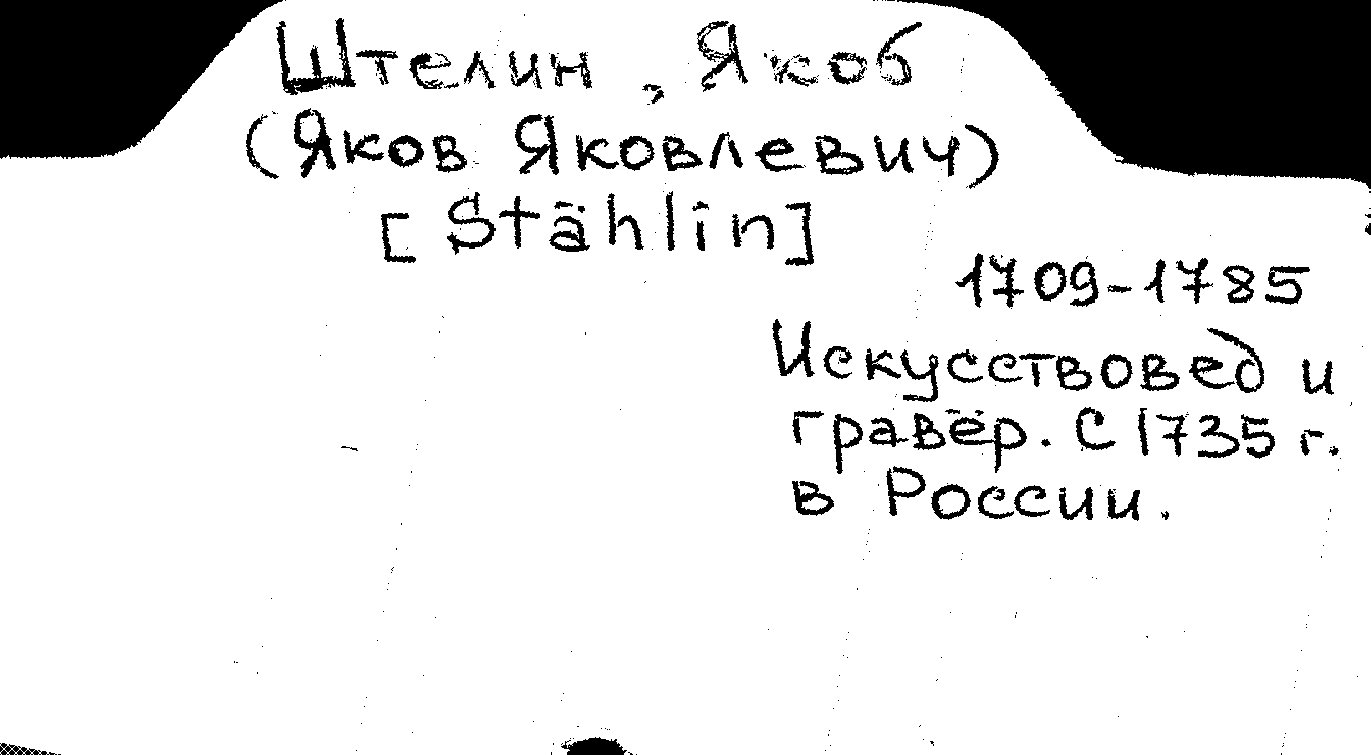 Штелин, Якоб
(Яков Яковлевич)
[Stählin]
1709-1785
Искусствовед и
гравёр. С 1735 г.
в России.